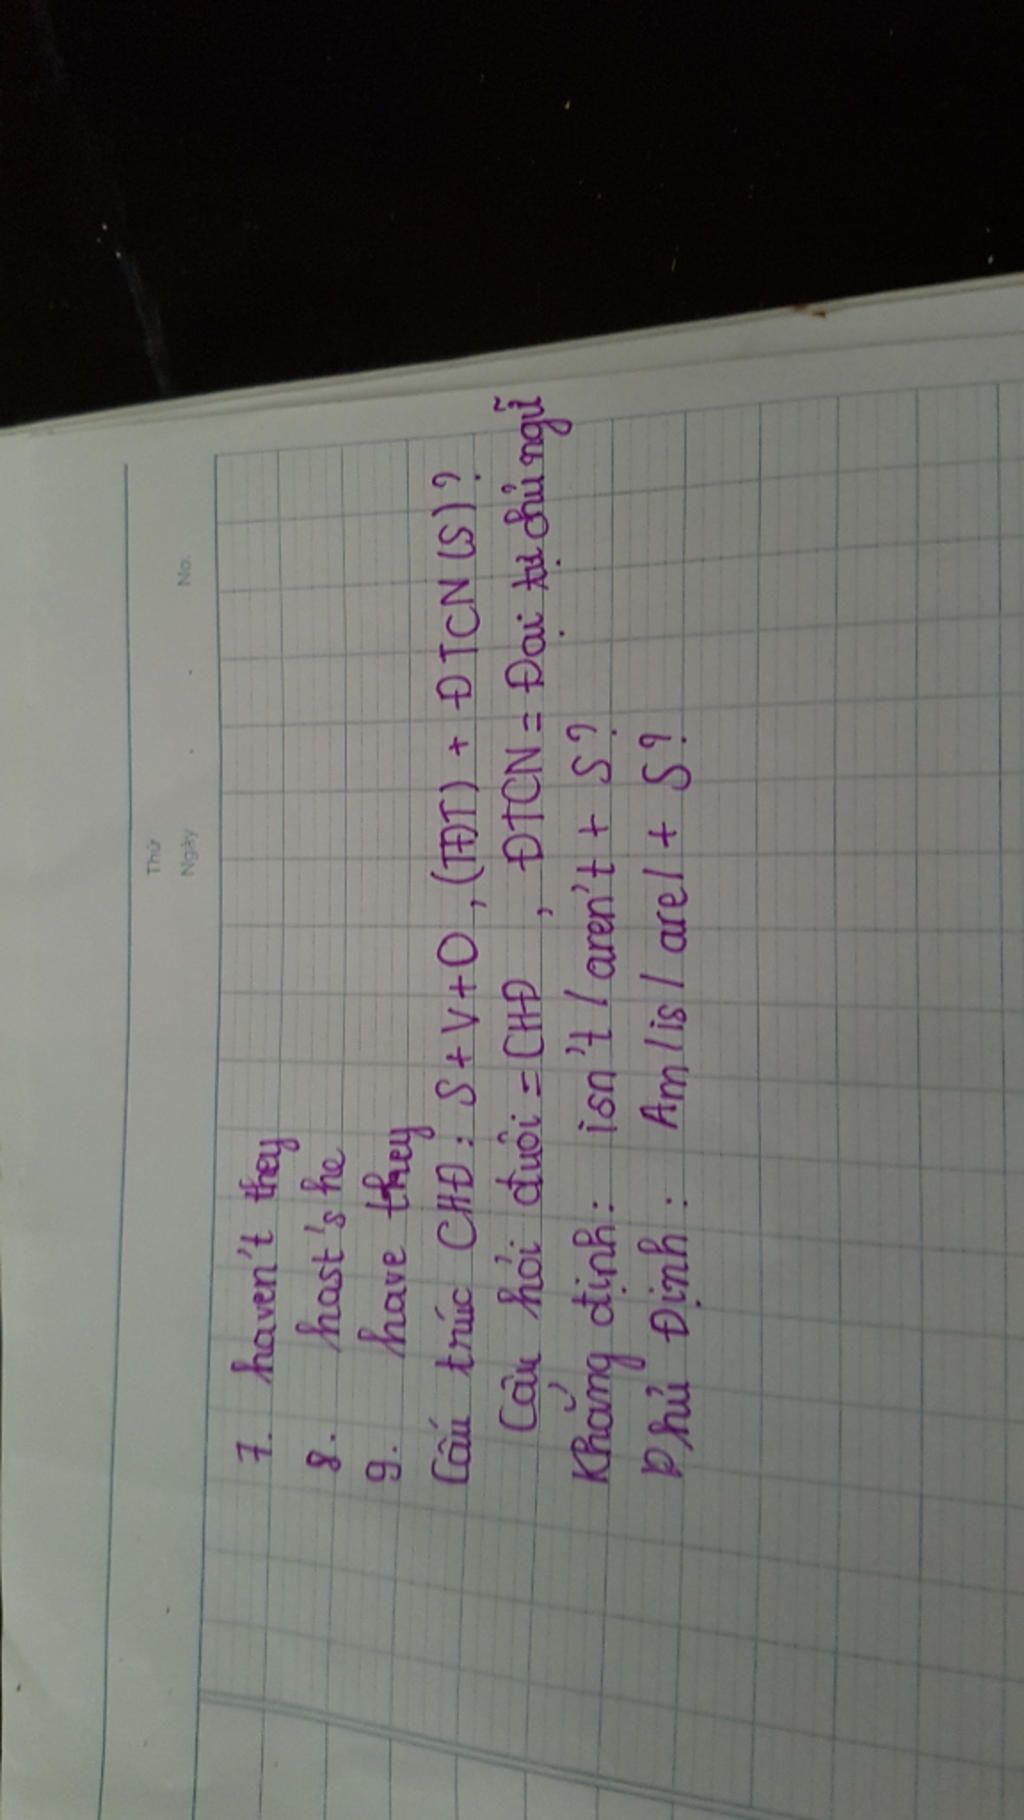 Thứ
Ngày . . No.
7. haven't they
8. hast's he
9. have they
Cấu trúc CHĐ: S+V+O, (TĐT) + ĐTCN (S)?
Câu hỏi đuôi = CHĐ , ĐTCN = Đại tự chủ ngữ
Khẳng định: isn't / aren't + S?
Phủ Định: Am / is / are / + S?